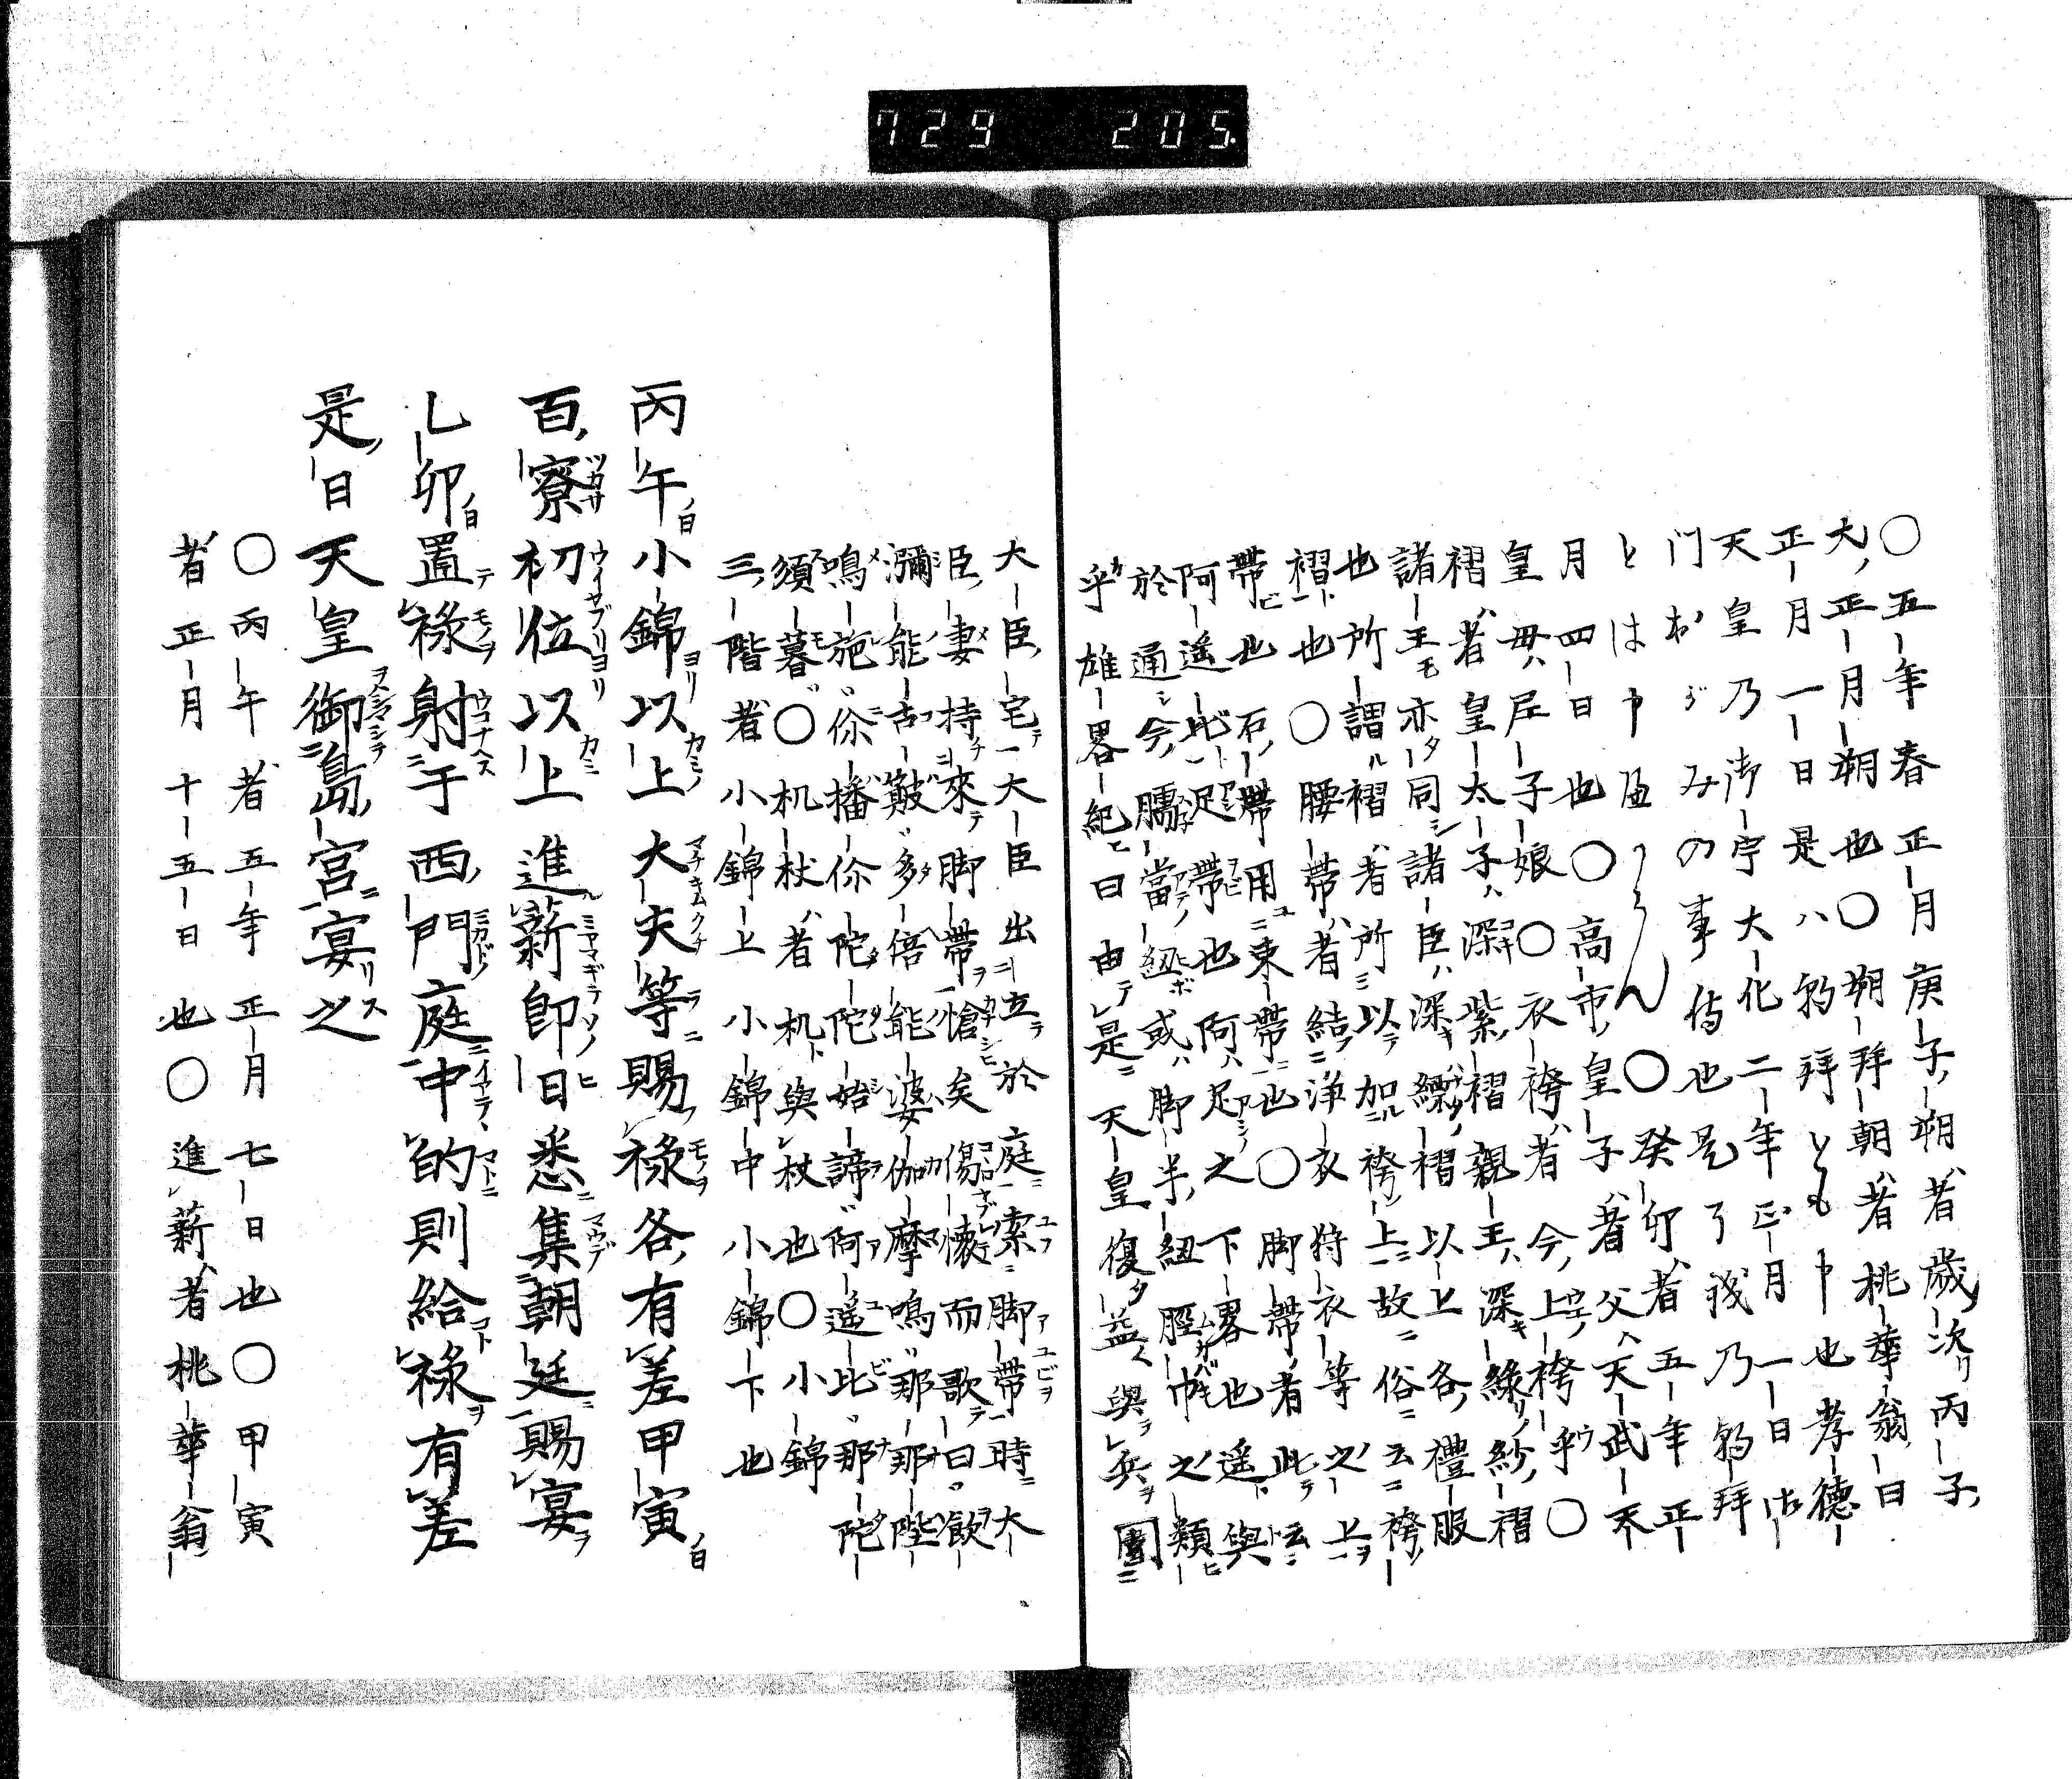 729 205.
○五年春正月庚子朔者歳次丙子
大正月朔也○朔拜朝者桃華翁曰
正月一日是ハ朝拜とも申也孝德
天皇乃御宇大化二年正月一日
門おがみの事侍也是了後乃朝拜
とは申
○癸卯者五年正
月四日也○高市皇子者父ハ天武天
皇母ハ尼子娘○衣袴者今上袴乎○
褶者皇太子ハ深紫褶親王ハ深綠紗褶
諸王亦同諸臣ハ深縹褶以上各禮服
也所謂褶者所以加袴上故俗云袴
褶也○腰帶者結淨衣狩衣等之上
帶也石帶用束帶也○脚帶者此云
阿遥比足帶也阿ハ足之下畧也遥與
於通今臑當紐或脚半紐脛巾之類
乎雄畧紀曰由是天皇復益與兵圍
大臣宅大臣出立於庭索脚帶時大
臣妻持來脚帶愴矣傷懷而歌曰飫
瀰能古簸多倍能婆伽摩鳴那那陛
鳴施伱播伱陀陀始諦阿遥比那陀
須暮○机杖者机與杖也○小錦
三階者小錦上小錦中小錦下也
丙午小錦以上大夫等賜祿各有差甲寅
百寮初位以上進薪卽日悉集朝廷賜宴
乙卯置祿射于西門庭中的則給祿有差
是日天皇御島宮宴之
○丙午者五年正月七日也○甲寅
者正月十五日也○進薪者桃華翁